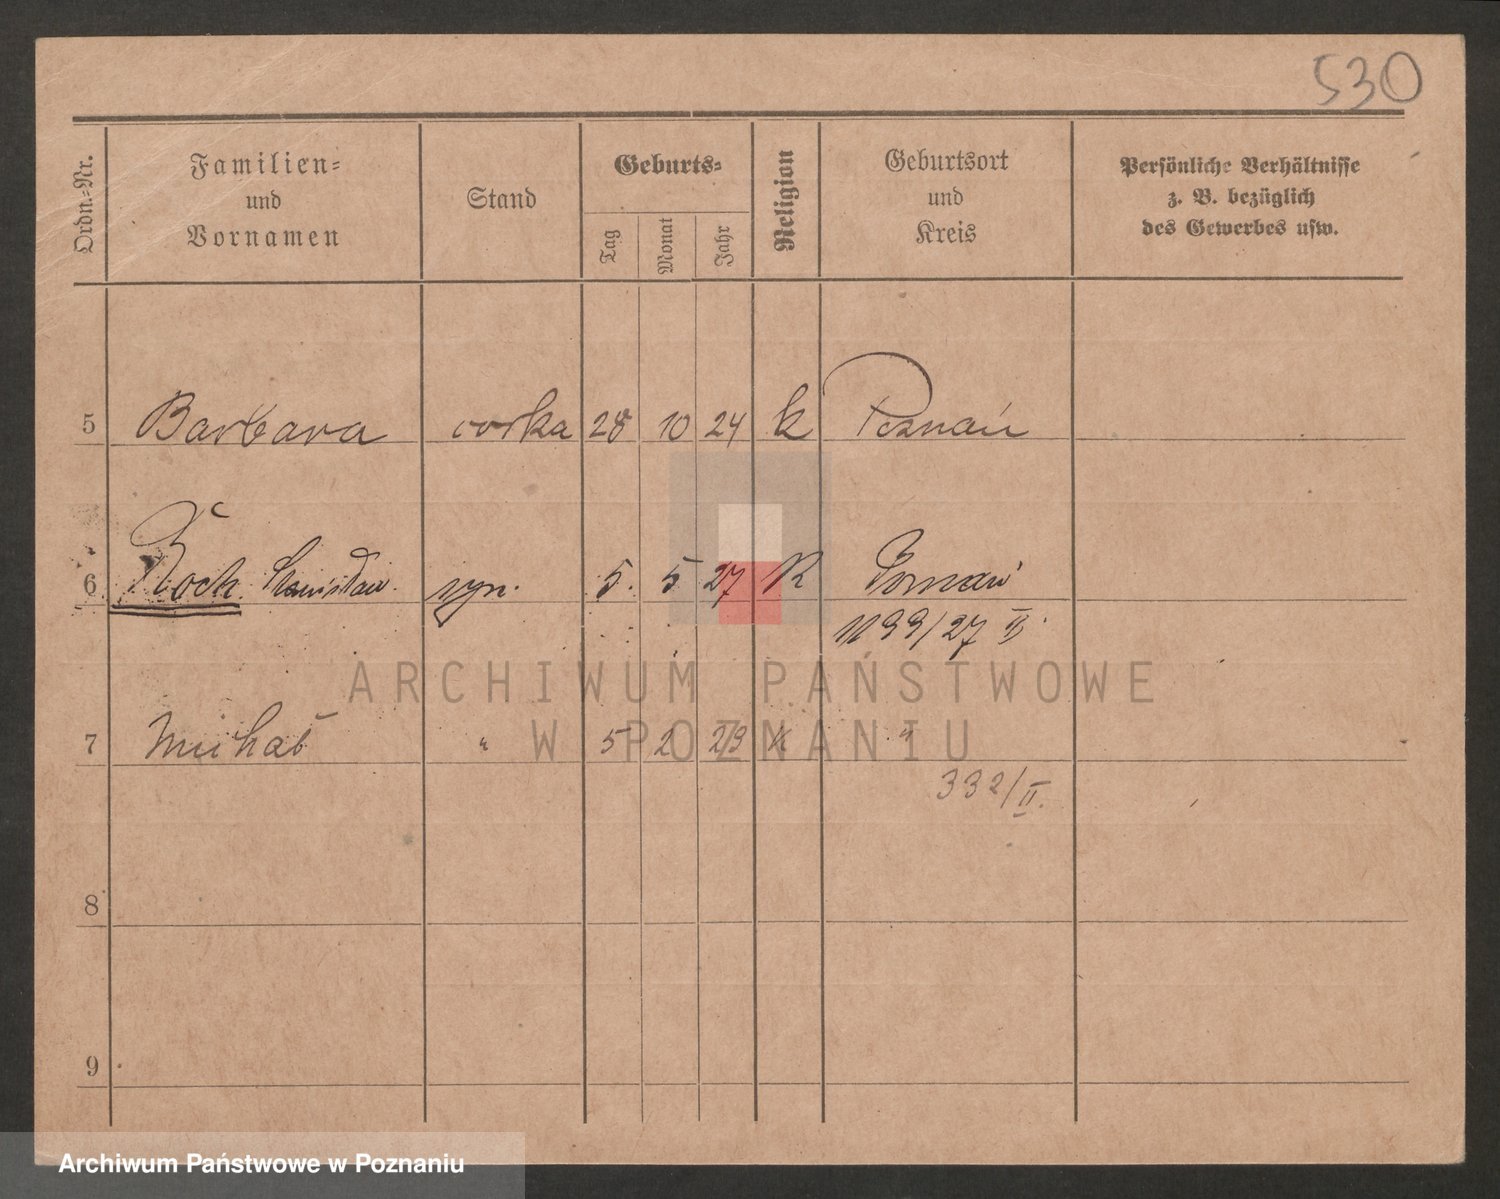 530
Ordn.-Nr.
Familien-
und
Vornamen
Stand
Geburts-
Tag
Monat
Jahr
Religion
Geburtsort
und
Kreis
Persönliche Verhältnisse
z. B. bezüglich
des Gewerbes usw.
5 Barbara corka 28 10 24 k Poznań
6 Roch Stanisław syn. 5. 5 27 R Poznań
1199/27 II
ARCHIWUM PAŃSTWOWE
W POZNANIU
7 Michał " 5 2 29 k "
332/II.
8
9
Archiwum Państwowe w Poznaniu